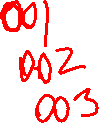 001
002
003